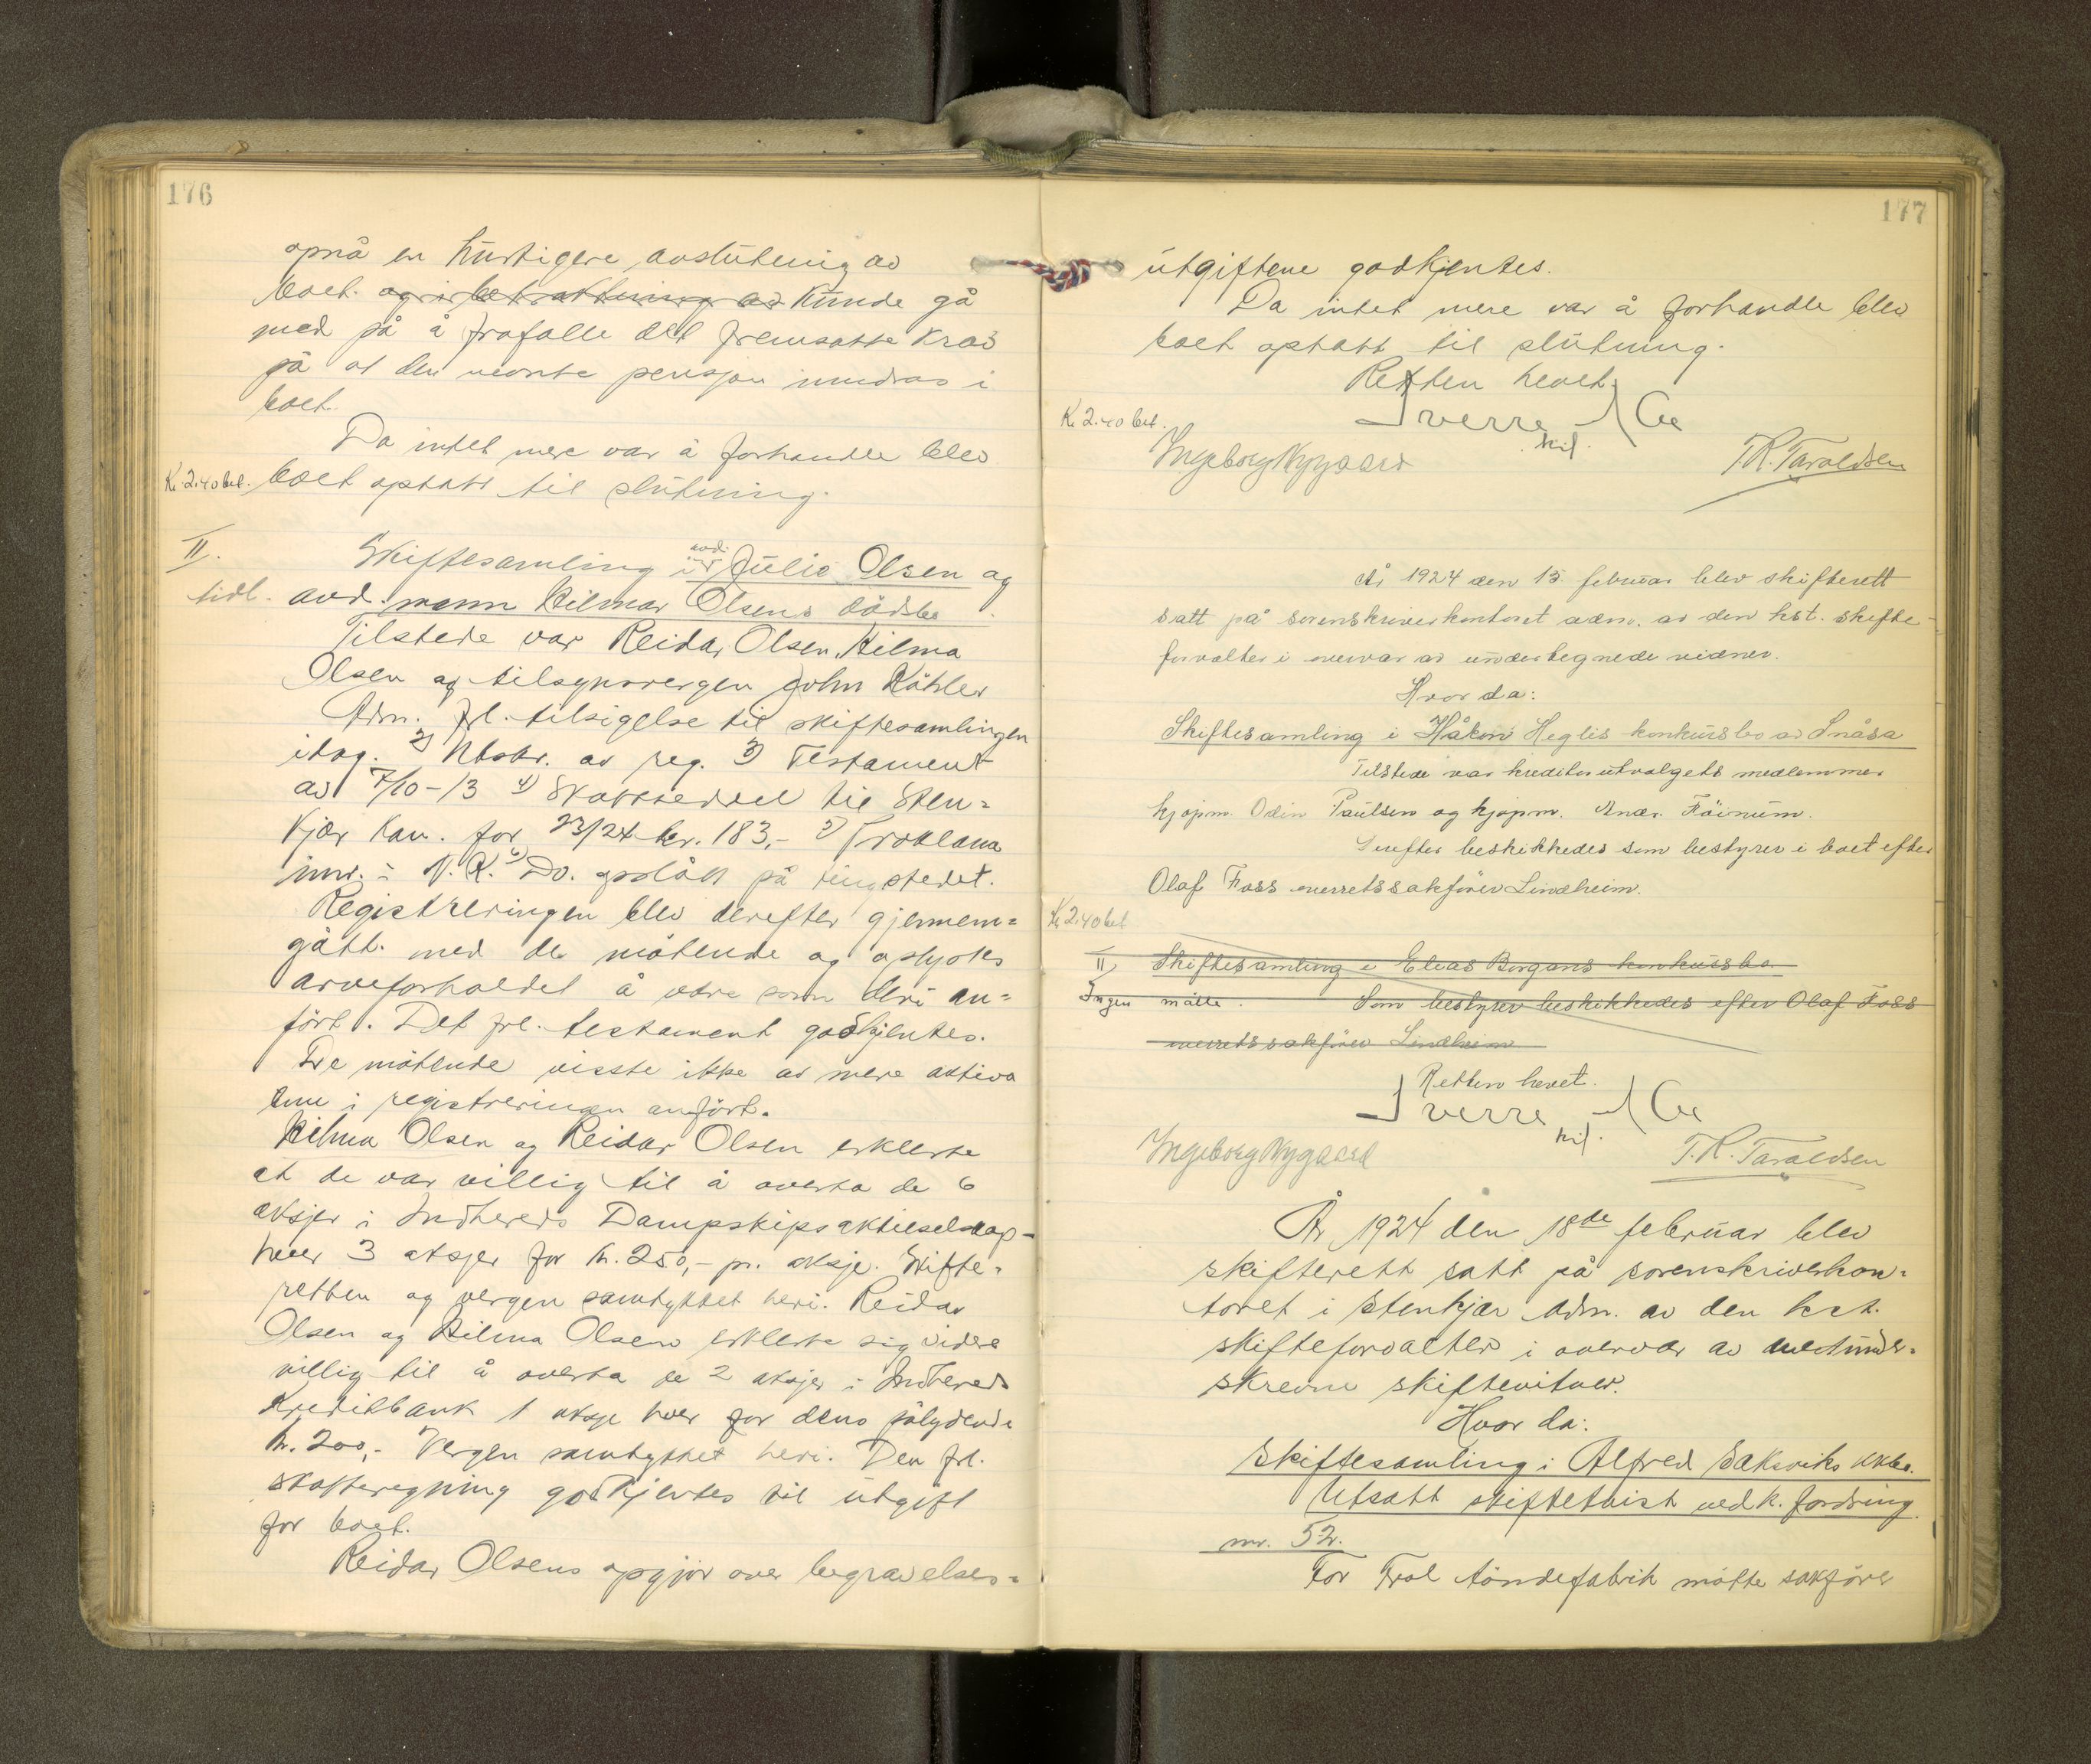 176
opnå en hurtigere avslutning av
boet. og i betraktning av kunde gå
med på å frafalle det fremsatte krav
på at den nevnte pensjon inndras i
boet.
Da intet mere var å forhandle blev
Kr. 2.40 bet. boet optatt til slutning.
II. Skiftesamling i avd. Julie Olsen og
tidl. avd. mann Hilmar Olsens dødsbo
Tilstede var Reidar Olsen, Hilma
Olsen og tilsynsvergen John Köhler
Adm. frl. tilsigelse til skiftesamlingen
idag. 2) Utskr. av reg. 3) Testament
av 7/10-13 4) Skatteseddel til Sten=
kjær kom. for 23/24 kr. 183,- 5) Proklama
innr. i N.R. 6) Do. opslått på tingstedet.
Registreringen blev derefter gjennem=
gått med de møtende og oplystes
arveforholdet å være som deri an=
ført. Det frl. testament godkjentes.
De møtende visste ikke av mere aktiva
enn i registreringen anført.
Hilma Olsen og Reidar Olsen erklerte
at de var villig til å overta de 6
aksjer i Indhereds Dampskipsaktieselskap-
hver 3 aksjer for kr. 250,- pr. aksje. Skifte=
retten og vergen samtykket heri. Reidar
Olsen og Hilma Olsen erklerte sig videre
villig til å overta de 2 aksjer i Indhereds
Kreditbank 1 aksje hver for dens pålydende
kr. 200,- Vergen samtykket heri. Den frl.
skatteregning godkjentes til utgift
for boet.
Reidar Olsens opgjør over begravelses=
177
utgiftene godkjentes.
Da intet mere var å forhandle blev
boet optatt til slutning.
Retten hevet.
Kr. 2.40 bet.
Sverre
kst.
Ingeborg Nygaard T.R. Taraldsen
År 1924 den 15. februar blev skifterett
satt på sorenskriverkontoret adm. av den kst. skifte-
forvalter i overvær av undertegnede vidner.
Hvor da:
Skiftesamling i Håkon Heglis konkursbo av Snåsa
Tilstede var kreditorutvalgets medlemmer
kjøpm. Odin Paulsen og kjøpm. Andr. Föinum.
Derefter beskikkedes som bestyrer i boet efter
Olaf Foss overretssakfører Lindheim.
Kr 2.40 bet
II) Skiftesamling i Elias Borgans konkursbo
Ingen møtte. Som bestyrer beskikkedes efter Olaf Foss
overretssakfører Lindheim
Retten hevet.
Sverre
kst.
Ingeborg Nygaard T.R. Taraldsen
År 1924 den 18de februar blev
skifterett satt på sorenskriverkon=
toret i Stenkjær adm. av den kst.
skifteforvalter i overvær av under=
skrevne skiftevitner.
Hvor da:
Skiftesamling i Alfred Saksviks kkbo.
Utsatt skiftetvist vedk. fordring
nr. 52.
For Frol tøndefabrik møtte sakfører